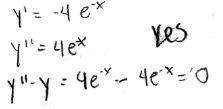 y' = -4 e^-x
yes
y'' = 4e^-x
y'' - y = 4e^-x - 4e^-x = 0